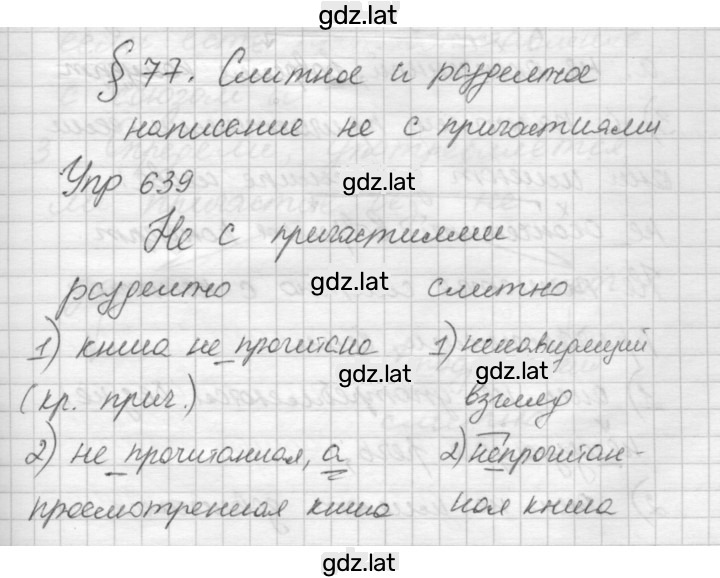 gdz.lat
§ 77. Слитное и раздельное
написание не с причастиями
Упр 639
gdz.lat
Не с причастиями
раздельно gdz.lat слитно
1) книга не прочитана 1) ненавидящий
gdz.lat gdz.lat
(кр. прич.) взгляд
2) не прочитанная, а 2) непрочитан-
gdz.lat gdz.lat
просмотренная книга ная книга
gdz.lat